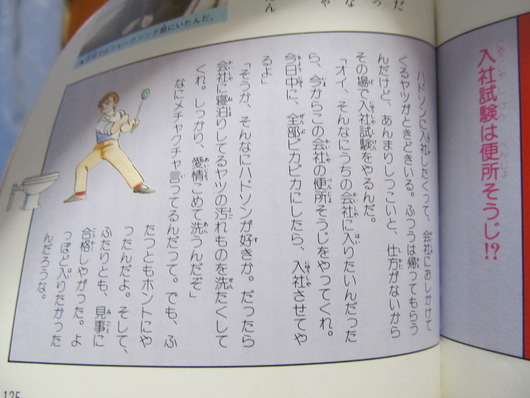 入社試験は便所そうじ!?
ハドソンに入社したくって、会社におしかけて
くるヤツがときどきいる。ふつうは帰ってもらう
んだけど、あんまりしつこいと、仕方がないから
その場で入社試験をやるんだ。
「オイ、そんなにうちの会社に入りたいんだった
ら、今からこの会社の便所そうじをやってくれ。
今日中に、全部ピカピカにしたら、入社させてや
るよ」
「そうか、そんなにハドソンが好きか。だったら
会社に寝泊りしてるヤツの汚れものを洗たくして
くれ。しっかり、愛情こめて洗うんだぞ」
なにメチャクチャ言ってるんだって。でも、ふ
たつともホントにや
ったんだよ。そして、
ふたりとも、見事に
合格しやがった。よ
っぽど入りたかった
んだろうな。
125